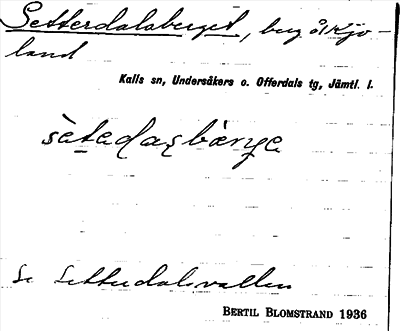 Setterdalsberget, berg å Kjo-
land
Kalls sn, Undersåkers o. Offerdals tg, Jämtl. l.
Se Setterdalsvallen
BERTIL BLOMSTRAND 1936